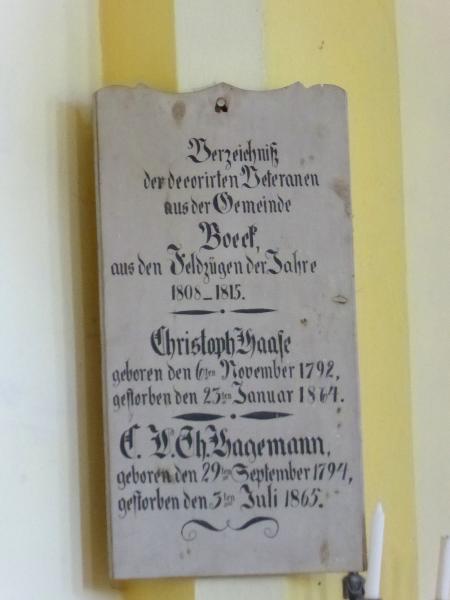 Verzeichniß
der decorirten Veteranen
aus der Gemeinde
Boeck,
aus den Feldzügen der Jahre
1808-1815.
Christoph Haase
geboren den 6ten November 1792,
gestorben den 23ten Januar 1864.
C. Th. Hagemann,
geboren den 29ten September 1794,
gestorben den 5ten Juli 1865.